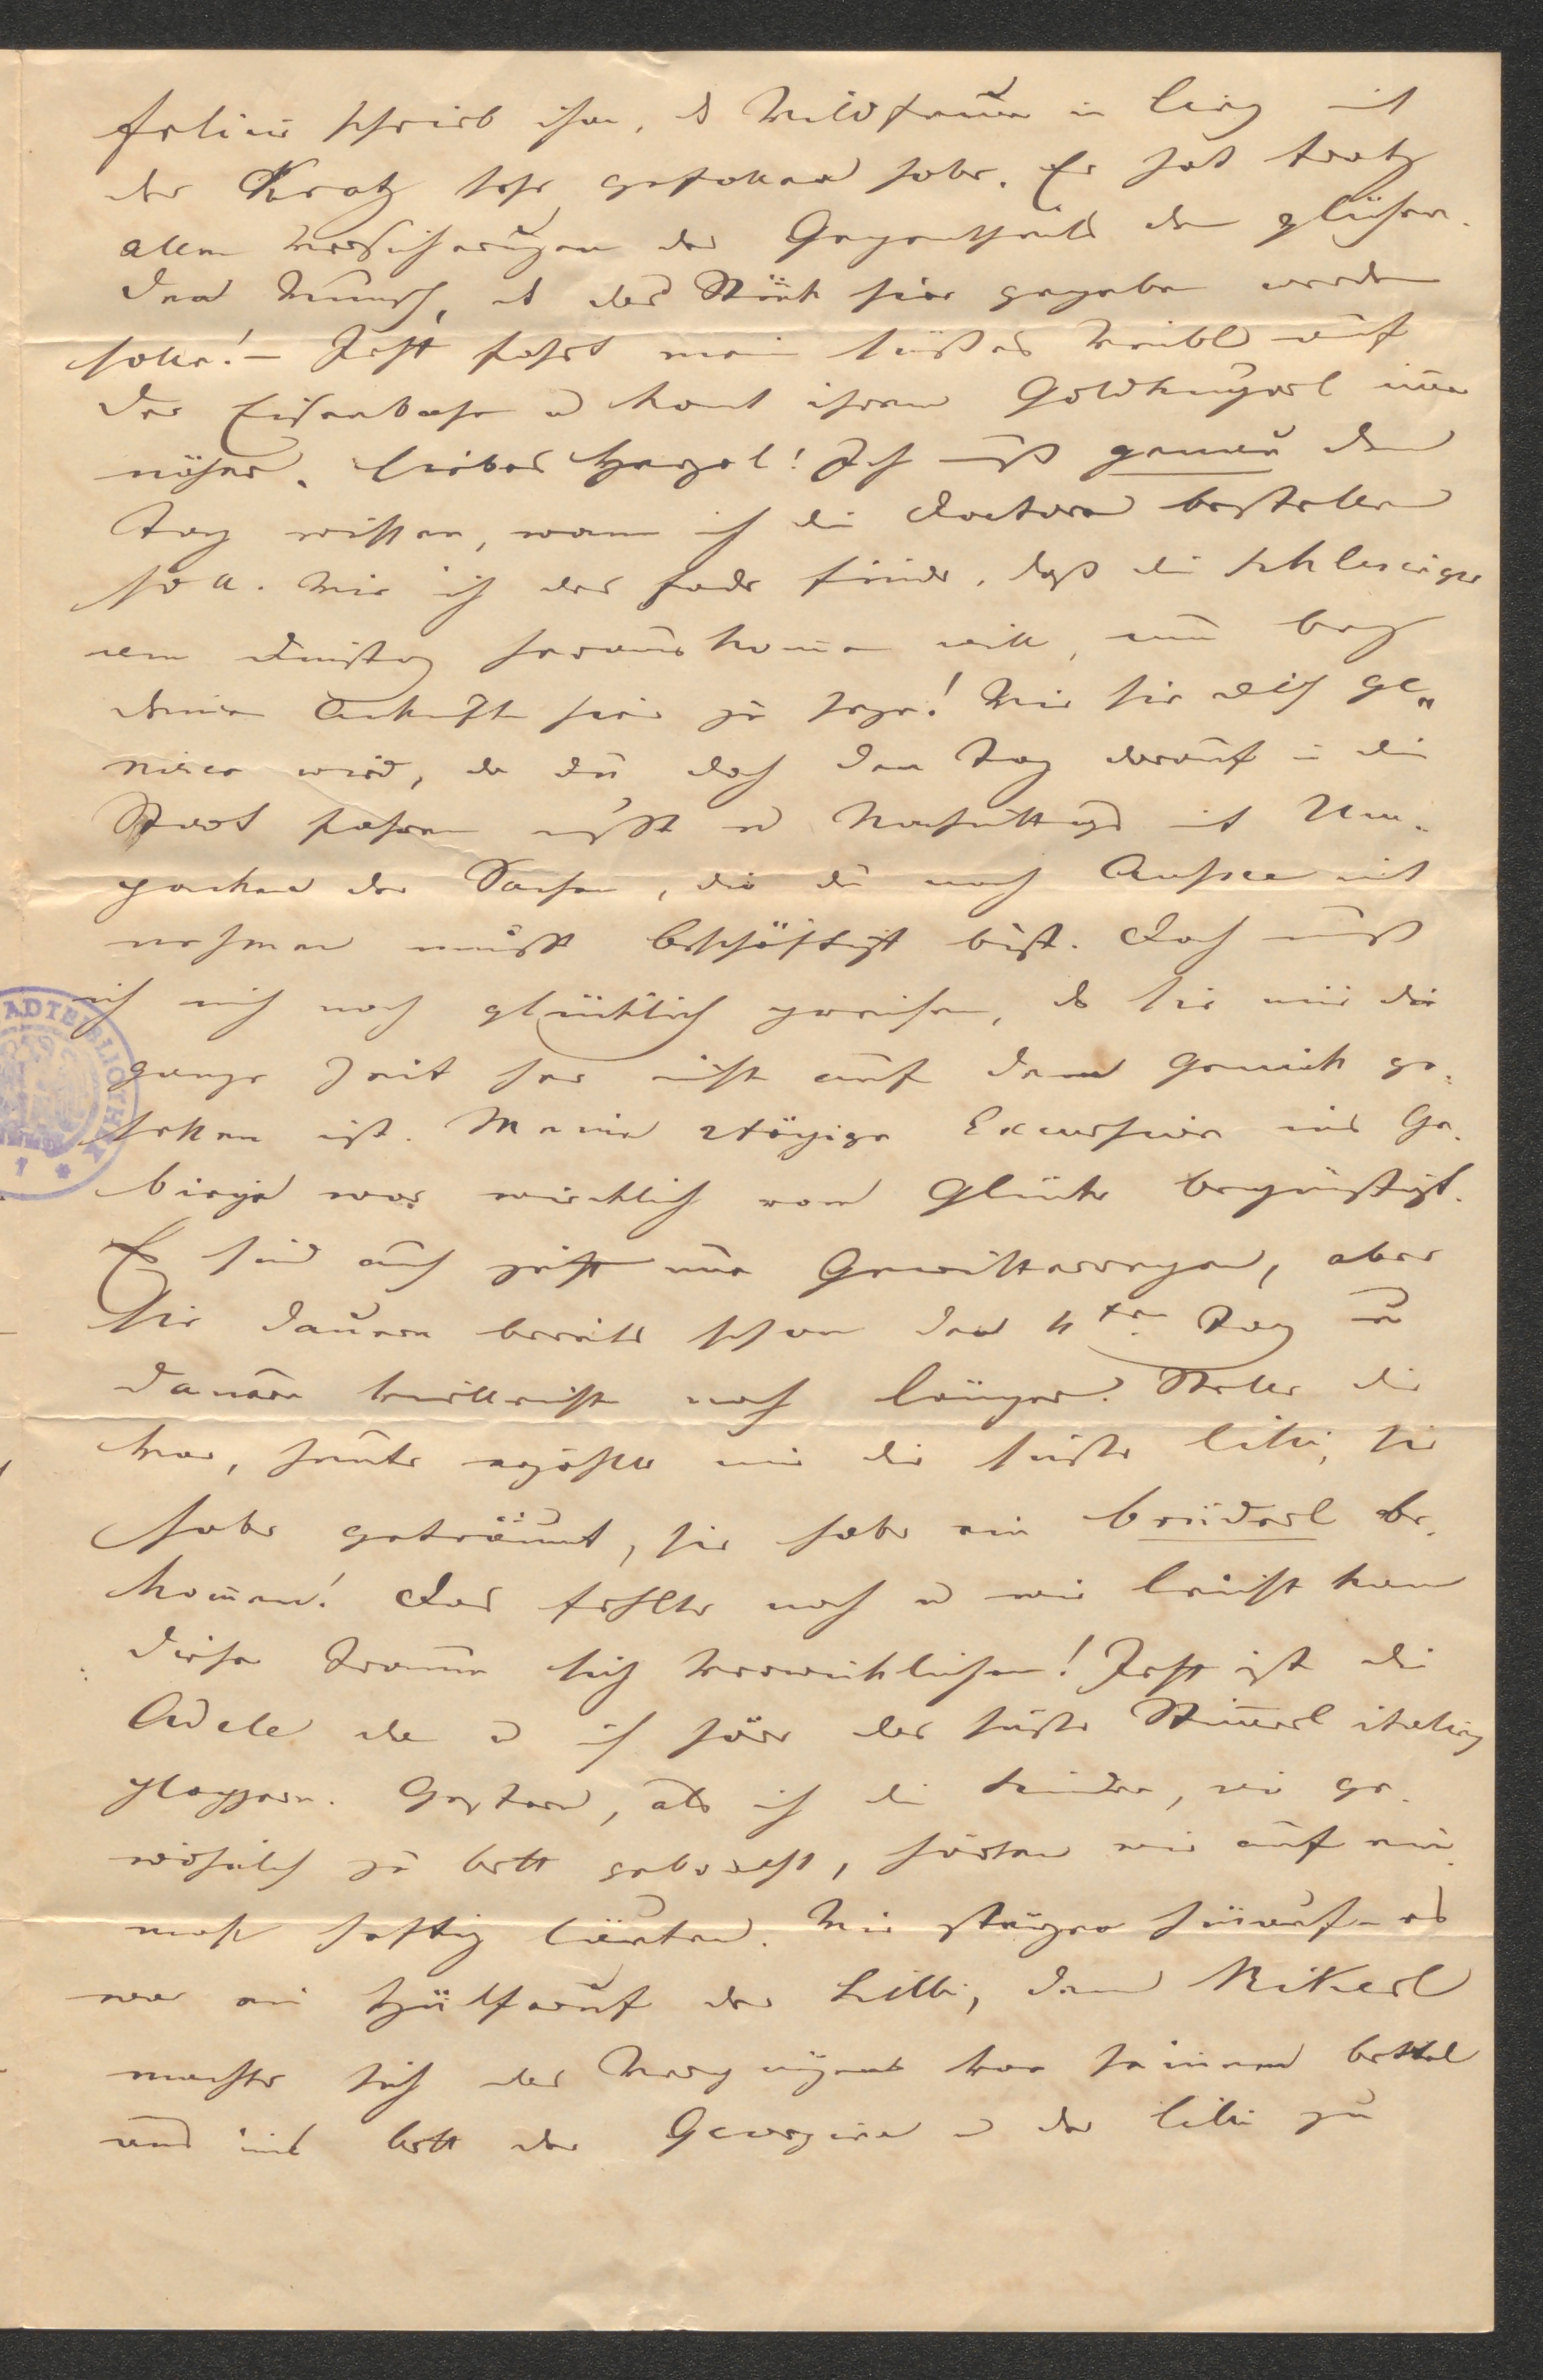 schrieb ihm, dß Wildfeuer in Linz mit
der Kratz sehr gefallen habe. Er hat trotz
allen Versicherungen des Gegentheils den glühen-
den Wunsch, dß das Stück hier gegeben werden
solle! – Jetzt fährt mein süßes Weibl auf
der Eisenbahn u komt ihrem immer
näher. Liebes Herzel! Ich muß genau den
Tag wissen, wann ich die Doctorn bestellen
soll. Wie ich das fade finde, daß die Schlesinger
am Dienstag herauskomen will, um bey
deiner Ankunft hier zu sein! Wie sie dich ge„
niren wird, da du doch den Tag darauf in die
Stadt fahren mußt u Nachmittags mit Um-
packen der Sachen, die du nach Aussee mit
nehmen mußt beschäftigt bist. Doch muß
ich mich noch glücklich preisen, dß sie mir die
ganze Zeit her nicht auf dem Genick ge-
sessen ist. Meine 2tägige Excursion ins Ge-
birge war wirklich vom Glücke begünstigt.
Es sind auch jetzt nur Gewitterregen, aber
sie dauern bereits schon den 4ten Tag u
dauern vielleicht noch länger. Stelle dir
vor, heute erzählte mir die süße Lili, sie
habe geträumt, sie habe ein Brüderl be-
komen! Das fehlte noch u wie leicht kann
dieser Traum sich verwirklichen! Jetzt ist die
Adele da u ich höre das süße Stimerl italienisch
plappern. Gestern, als ich die Kinder, wie ge-
wöhnlich zu Bett gebracht, hörten wir auf ein-
mal heftig läuten. Wir stiegen hinauf – es
war ein Hülferuf der Lilli, denn Rikerl
machte sich das Vergnügen von seinem Bettel
ins Bett der Georgine u der Lili zu